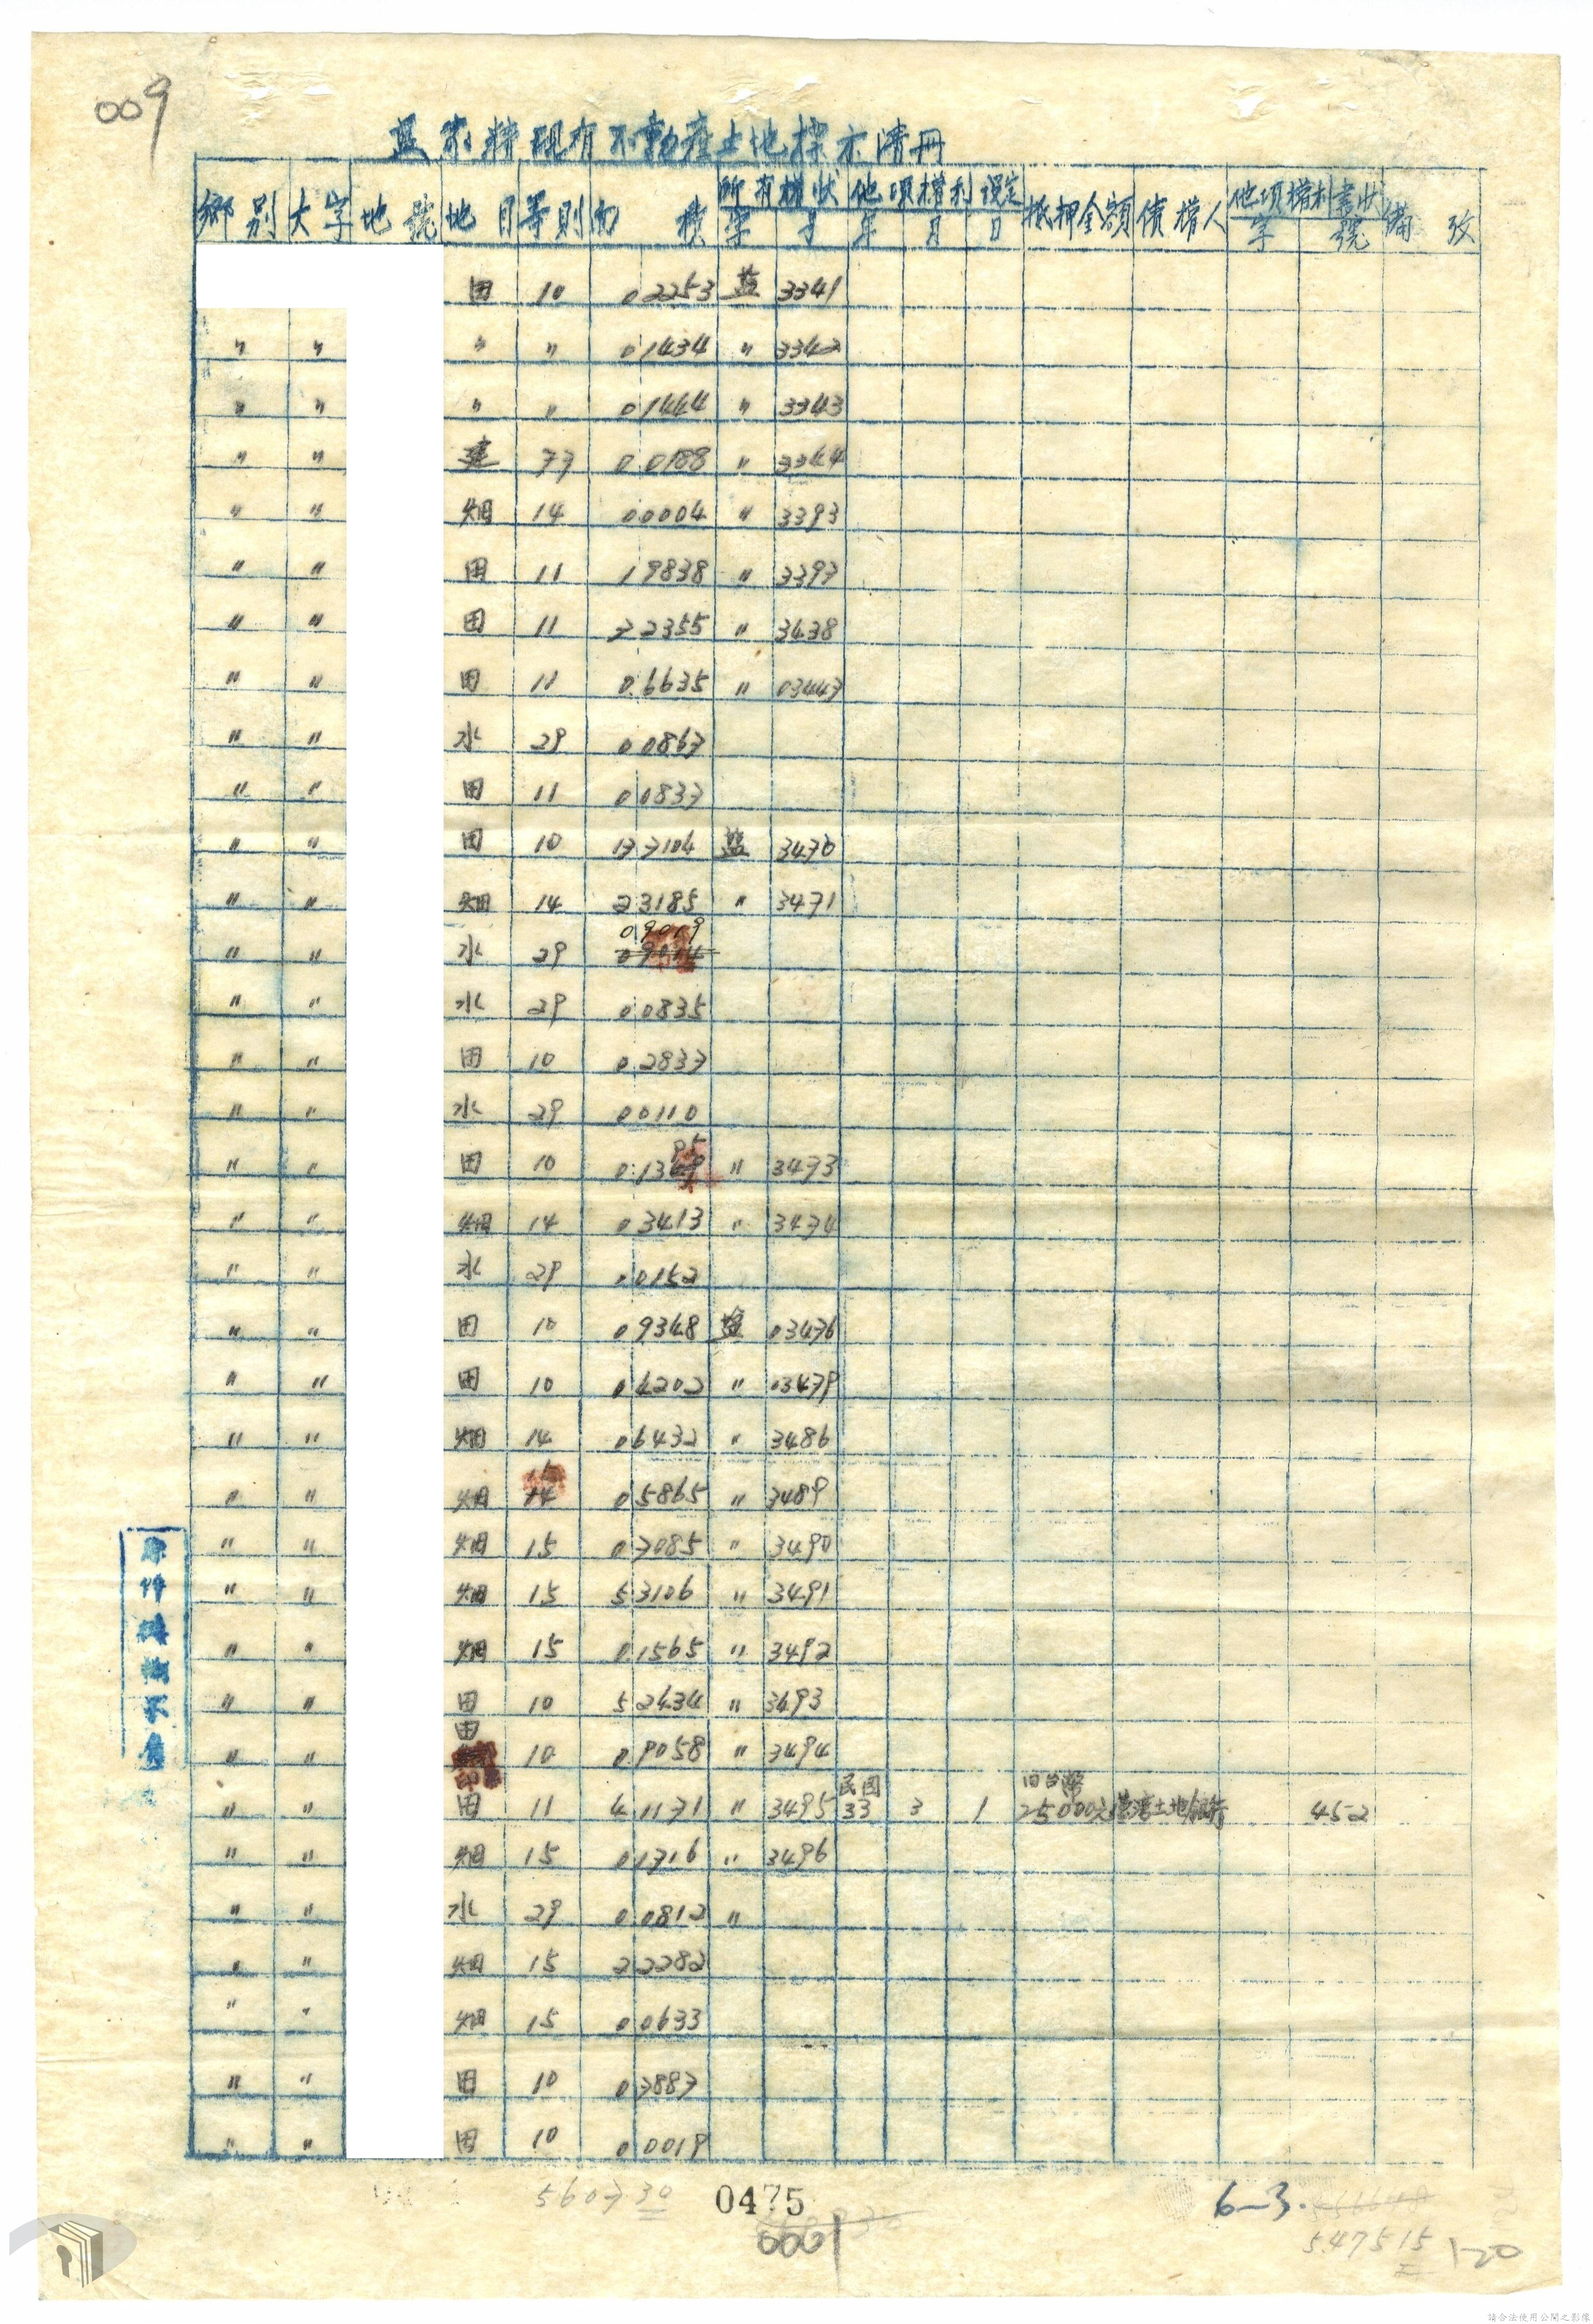 009
現有不動產土地標示清冊
鄉別 大字 地號 地目 等則 面積 所有權狀 他項權利設定 抵押金額 債權人 他項權利書狀 備攷
字 年 月 日 字 號
田 10 02253 3341
〃 〃 〃 〃 01434 〃 3342
〃 〃 〃 〃 01444 〃 3343
〃 〃 建 77 00188 〃 3344
〃 〃 畑 14 00004 〃 3393
〃 〃 田 11 19838 〃 3397
〃 〃 田 11 72355 〃 3438
〃 〃 田 11 06635 〃 03447
〃 〃 水 29 00867
〃 〃 田 11 00837
〃 〃 田 10 177104 3470
〃 〃 畑 14 23185 〃 3471
09019
〃 〃 水 29
〃 〃 水 29 00835
〃 〃 田 10 02837
〃 〃 水 29 00110
〃 〃 田 10 〃 3473
〃 〃 畑 14 03413 〃 3474
〃 〃 水 29 00152
〃 〃 田 10 09348 03476
〃 〃 田 10 04202 〃 03479
〃 〃 畑 14 06432 〃 3486
15
〃 〃 畑 14 05865 〃 3489
〃 〃 畑 15 07085 〃 3490
〃 〃 畑 15 53106 〃 3491
〃 〃 畑 15 01565 〃 3492
〃 〃 田 10 52434 〃 3493
田
〃 〃 10 09058 〃 3494
民国 旧台幣
〃 〃 田 11 41171 〃 3495 33 3 1 25000元 臺湾土地銀行 452
〃 〃 畑 15 01716 〃 3496
〃 〃 水 29 00812 〃
〃 〃 畑 15 22282
〃 〃 畑 15 00633
〃 〃 田 10 07887
〃 〃 田 10 00019
560730
0475
0001
6-3.
547515
120
請合法使用公開之影像